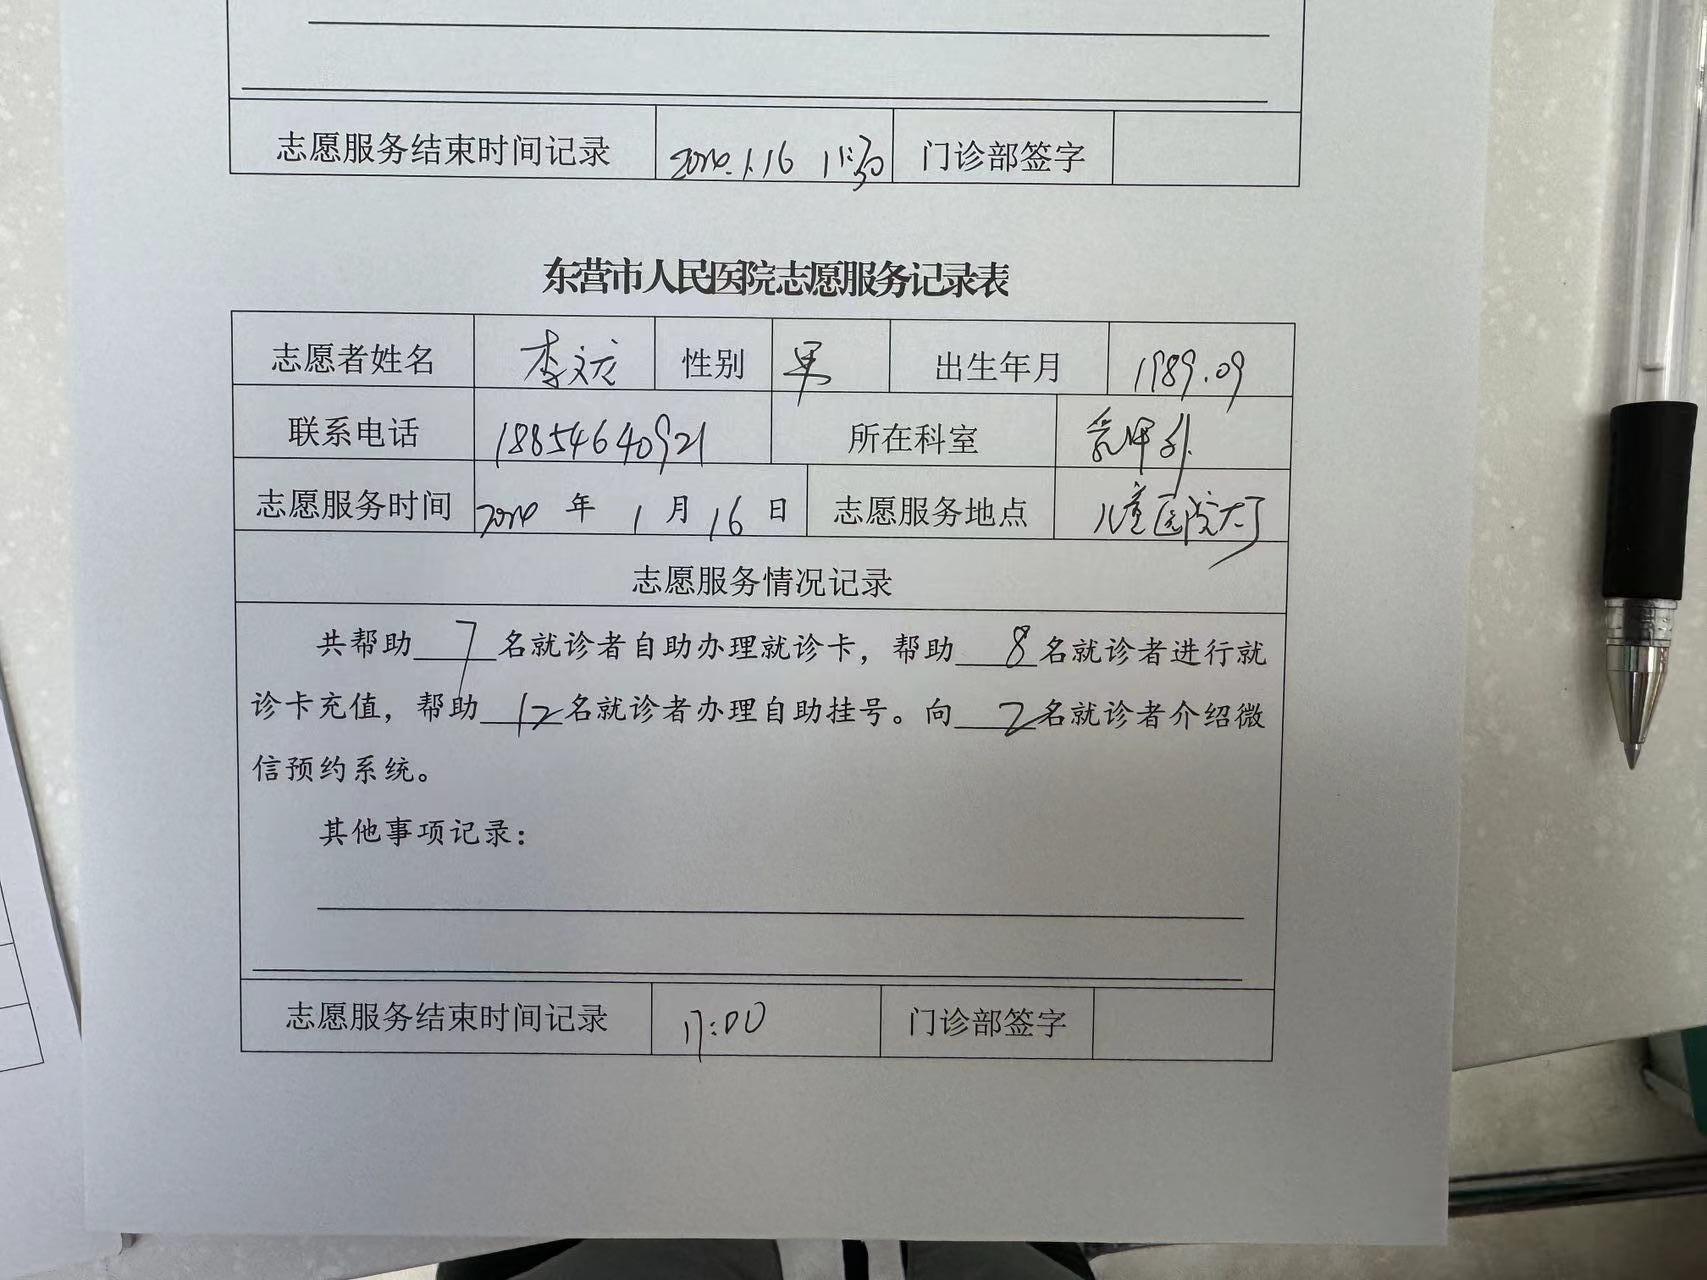 志愿服务结束时间记录 2024.1.16 11:30 门诊部签字
东营市人民医院志愿服务记录表
志愿者姓名 李文龙 性别 男 出生年月 1989.09
联系电话 18854640921 所在科室 乳甲外
志愿服务时间 2024 年 1 月 16 日 志愿服务地点 儿童医院大厅
志愿服务情况记录
共帮助 7 名就诊者自助办理就诊卡，帮助 8 名就诊者进行就
诊卡充值，帮助 12 名就诊者办理自助挂号。向 2 名就诊者介绍微
信预约系统。
其他事项记录：
志愿服务结束时间记录 17:00 门诊部签字